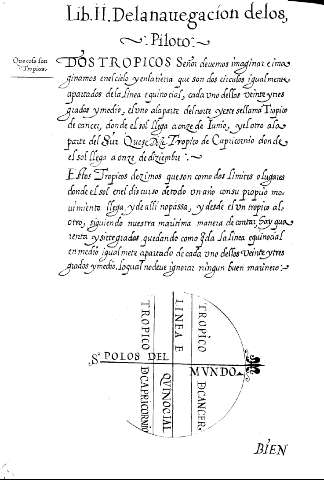 Lib. II. De la nauegacion de los,
Piloto
Que cosa son
Tropicos.
DOS TROPICOS Señor deuemos imaginar e ima
ginamos en el cielo y en la tierra que son dos circulos igualmente
apartados de la linea equinocial, cada vno dellos veinte y tres
grados y medio, el vno a la parte del norte y este se llama Tropico
de cancer, donde el sol llega a onze de Iunio, y el otro a la
parte del Sur Que se Tropico de Capricornio donde
el sol llega a onze de diziembre.
Estos Tropicos dezimos que son como dos limites o lugares
donde el sol en el discurso de todo vn año con su propio mo
uimiento llega, y de alli no passa, y desde el vn tropico al o
otro, siguiendo nuestra maritima manera de contar, hay qua
renta y siete grados quedando como la linea equinocial
en medio igualmete apartado de cada vno dellos veinte y tres
grados y medio, lo qual no deue ignorar ningun buen marinero:
TROPICO
D CAPRICORNIO
LINEA E
QVINOCIAL
TROPICO
D CANCER
S. POLOS DEL MVNDO
BIEN